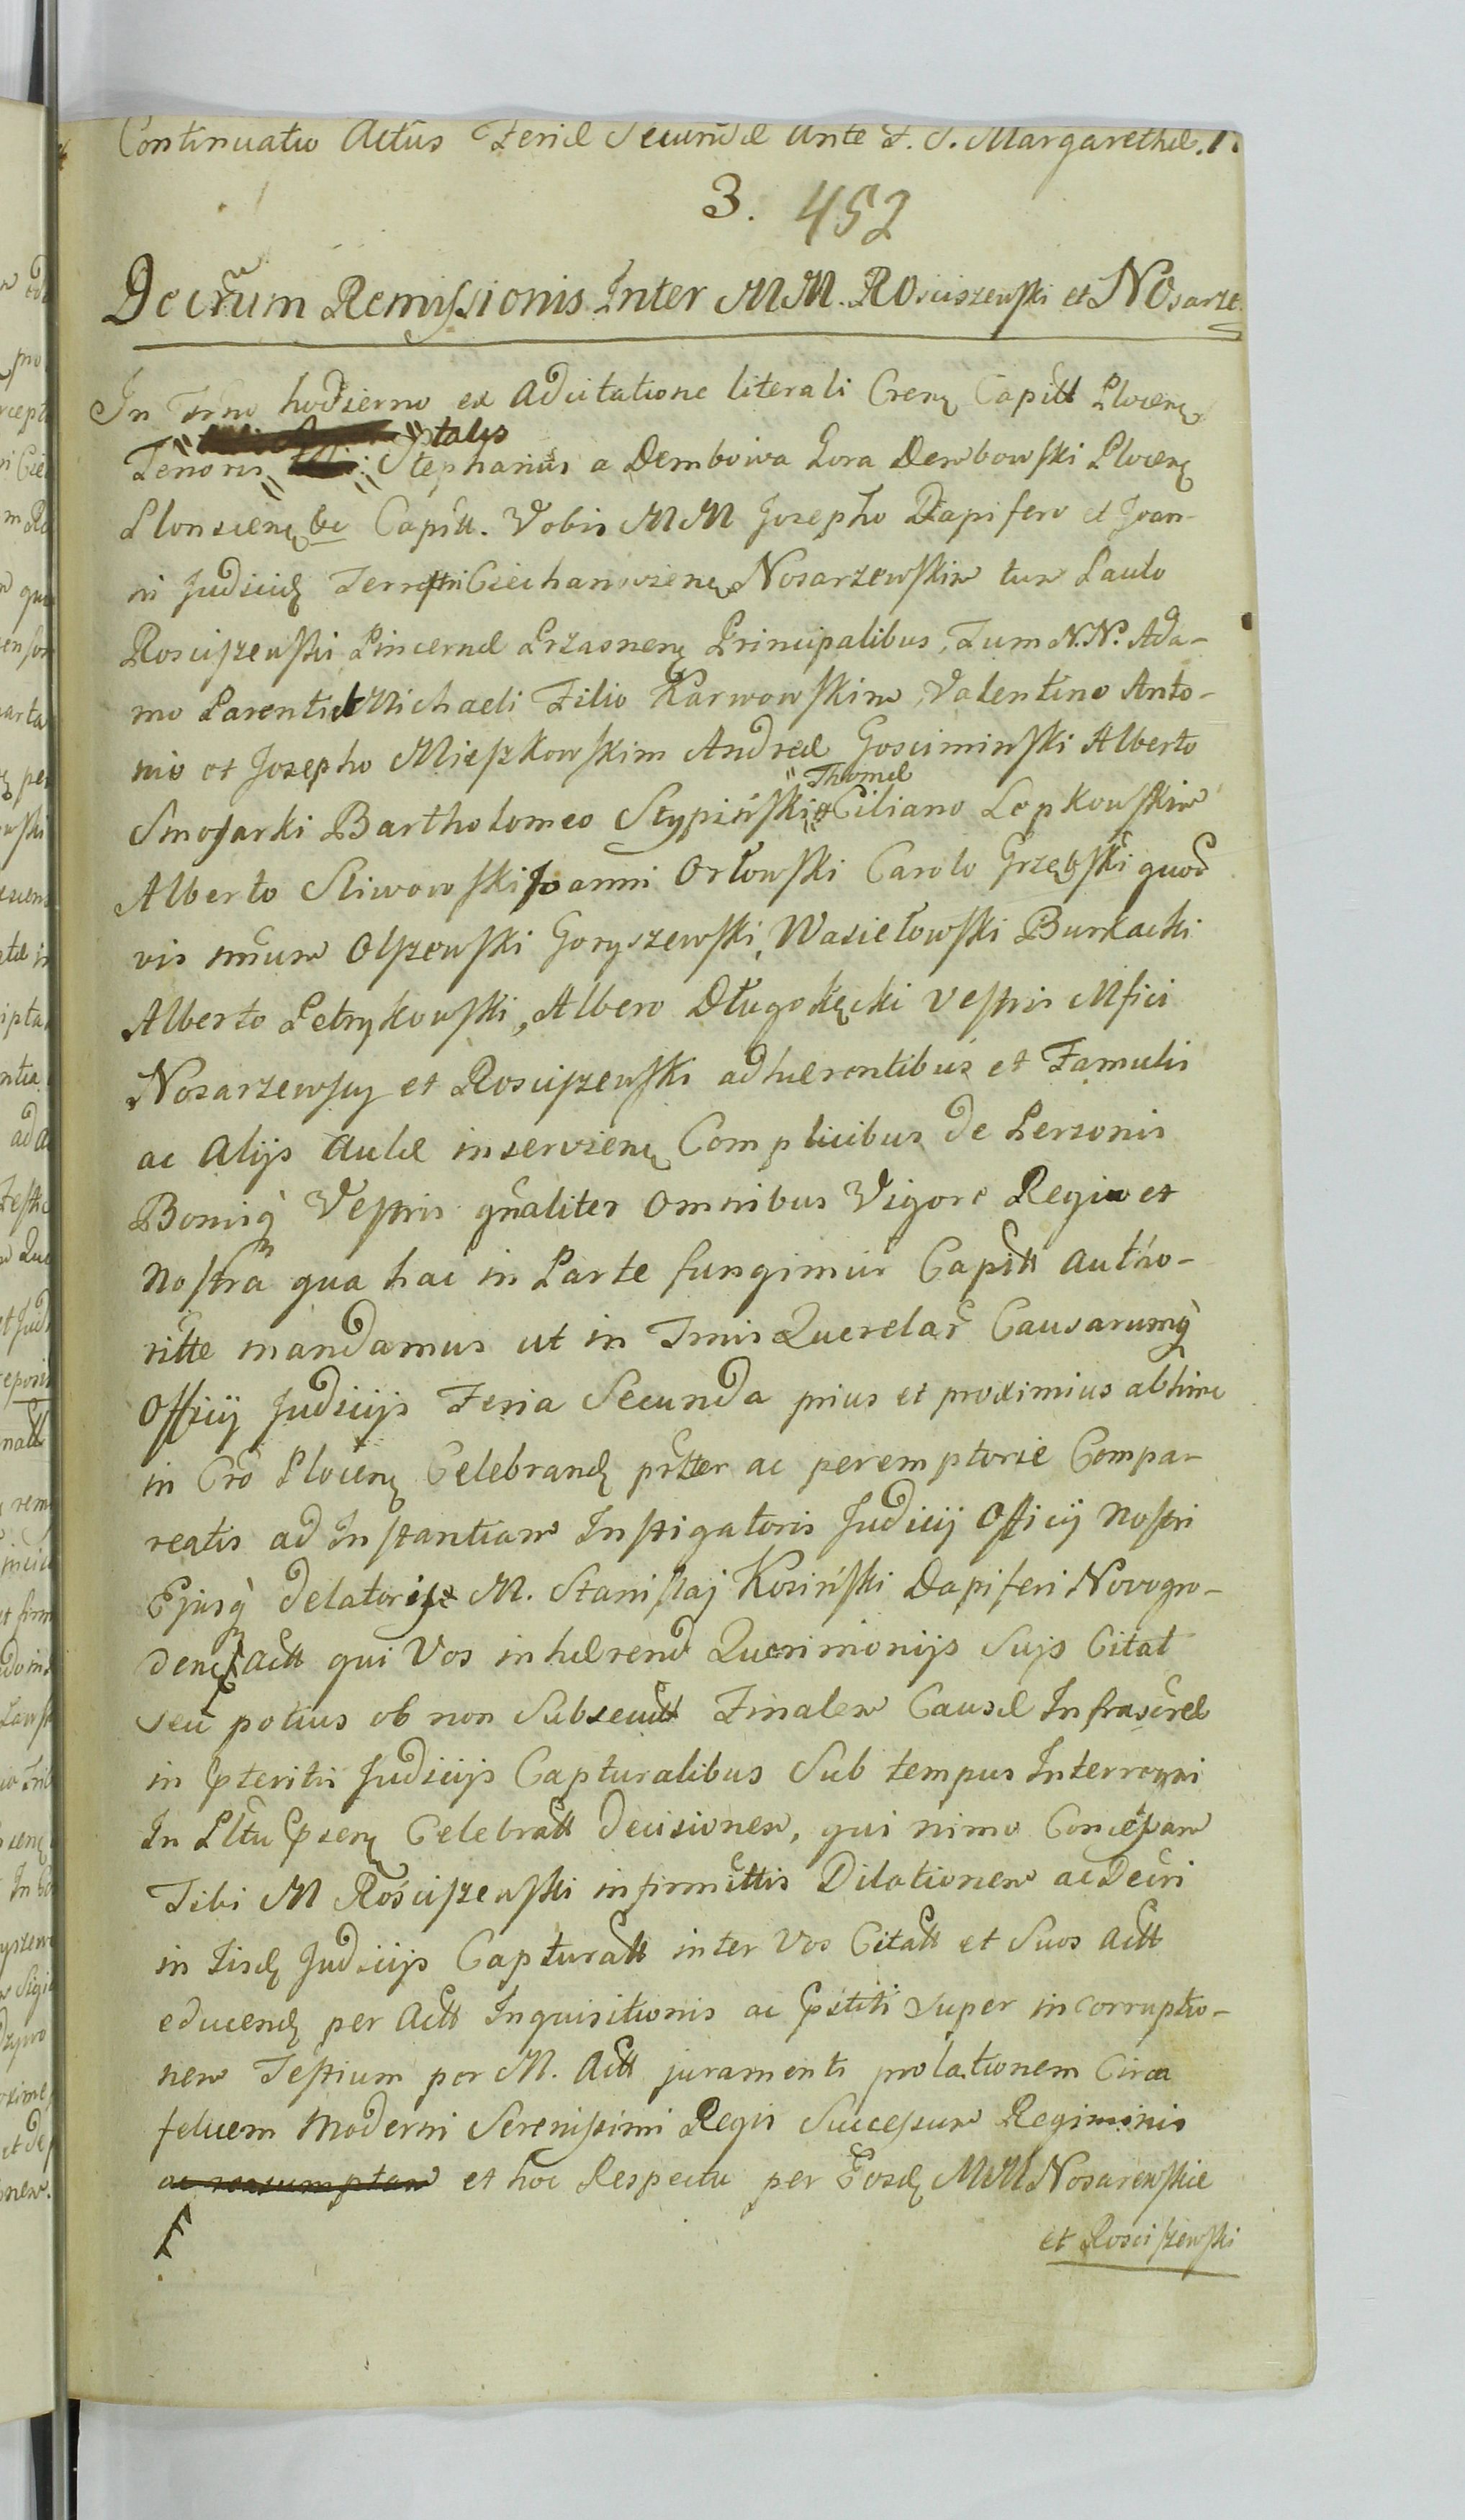 Continuatio Actus Feriæ Secundæ ante F. S. Margarethæ.
3. 452
Decrum Remissionis Inter MM. Rosciszewski et Nosarze
In Trno hodierno ex Adcitatione literali Crenę Capitt Plocenę
talis
Tenoris Stephanus a Dembowa Gora Dembowski Plocenę
Plonscienę etc Capitt. Vobis MM Josepho Dapifero et Joan-
ni Judicidę Terrestri Ciechanoviene Nosarzewskim tum Paulo
Rosciszewski Pincernæ Przasnenę Principalibus, Tum N.N. Ada-
mo Parenti et Michaeli Filio Karwowskim, Valentino Anto-
nio et Josepho Mieszkowskim Andreæ Gosciminski Alberto
Thomæ
Smosarki Bartholomeo Stypiński et Ciliano Lepkowskim
Alberto Sliwowski Joanni Orłowski Carolo Grzębski quod
vis nnum Olszewski Goryszewski, Wasiełowski Burkacki
Alberto Petrykowski, Albero Długokęcki vestris Mfici
Nosarzewscy et Rosciszewski adhærentibus et Famulis
ac Alijs Aulæ inservienę Complicibus de Personis
Bonisq Vestris gnaliter omnibus Vigore Regia et
nostra qua hac in Parte fungimur Capitt autho-
ritte mandamus ut in Tmis Querelar Causarumq
Officij Judicijs Feria Secunda prius et proximius abhinc
in Cro Plocenę Celebrandę pntter ac peremptorie Compa-
reatis ad Instantiam Instigatoris Judicij Officij nostri
Ejusq delatoris M. Stanislaj Kosiński Dapiferi Novogro-
denę Actt qui Vos inhærend Querimonijs Suis Citat
Seu potius ob non Subsecutt Finalem Causæ Infrascræ
in Pteritis Judicijs Capturalibus Sub tempus Interregni
In Pltu Pzenę Celebratt decisionem, qui nimo Concessam
Tibi M Rościszewski infirmittis Dilationem ac Decri
in Iisdę Judicijs Capturatt inter Vos Citatt et Suos Actt
educendę per Actt Inquisitionis ac Pstiti Super incorruptio-
nem Testium per M. Actt juramenti prolationem Circa
felicem Moderni Serenissimi Regis Successum Regiminis
ac reasumptam et hoc Respectu per Eosdę MM Nosarewskie
et Rosciszewski